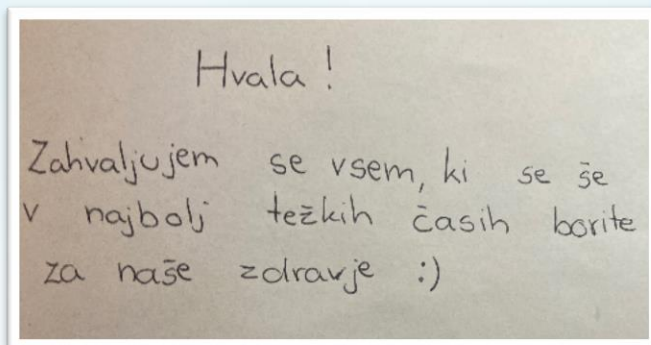 Hvala !
Zahvaljujem se vsem, ki se še
v najbolj težkih časih borite
za naše zdravje :)